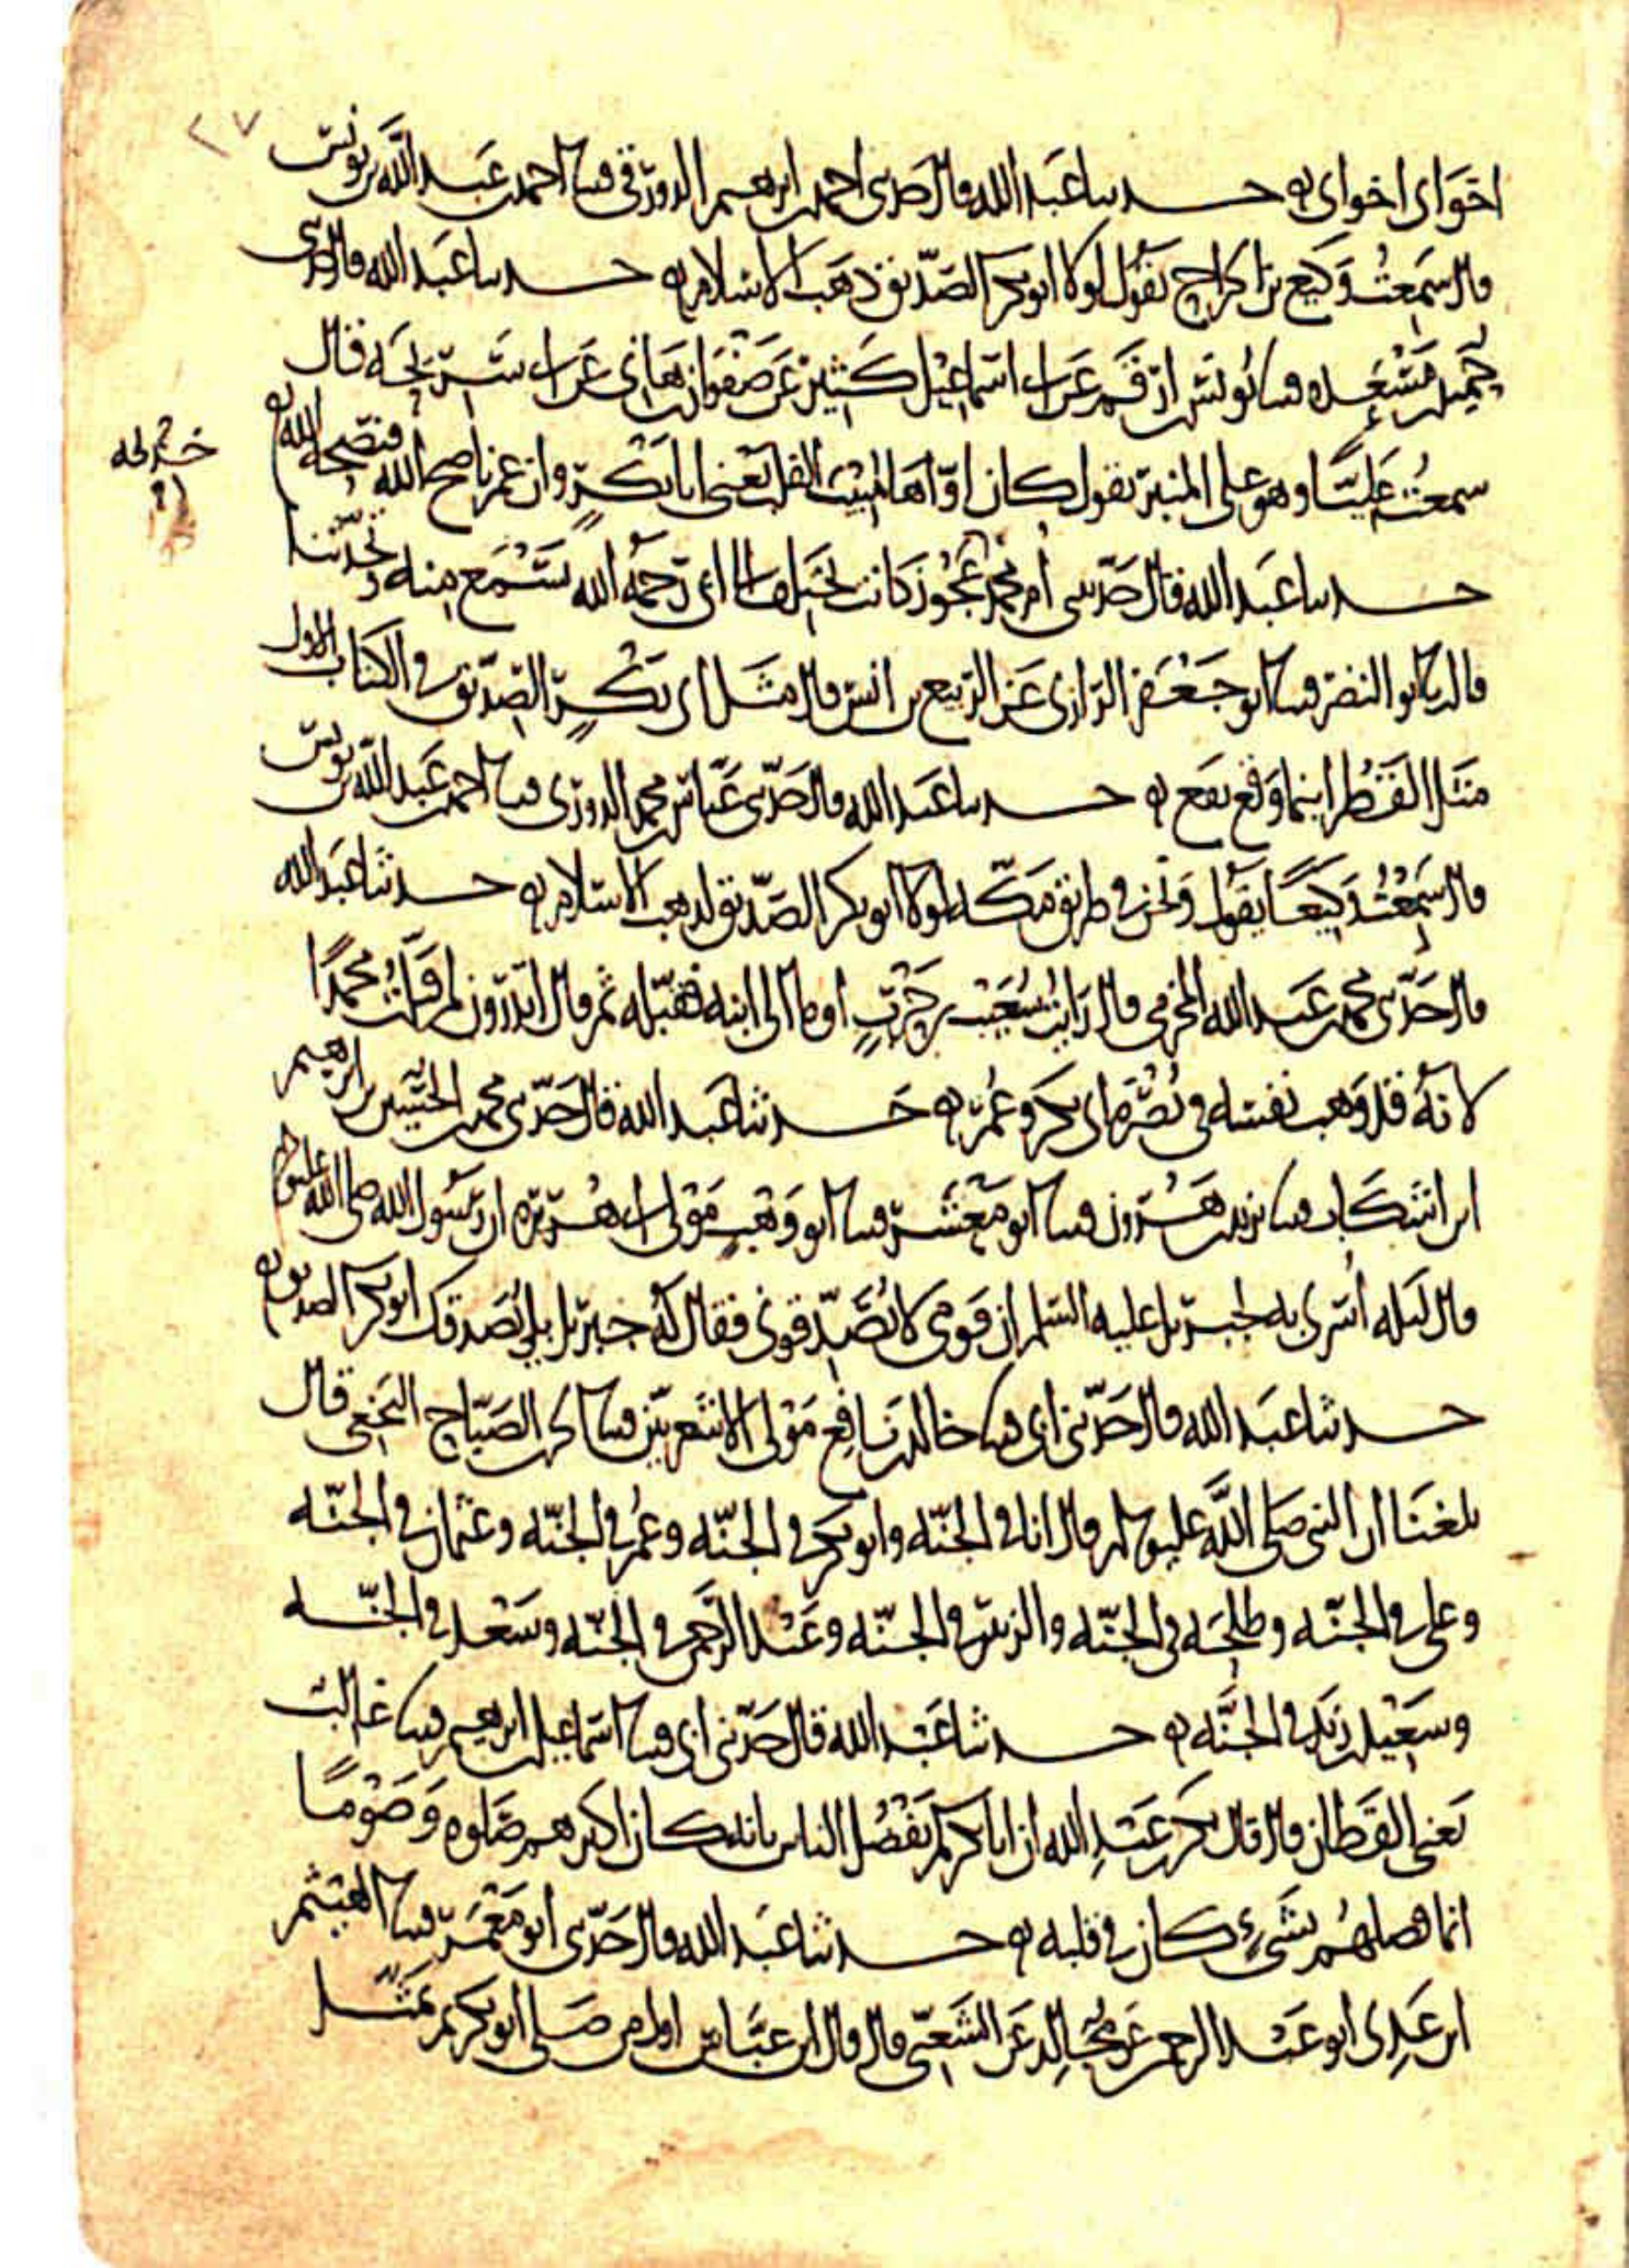 ٢٧
اخواى اخواى ه حدثنا عبد الله قال حدثنى احمد بن ابرهيم الدورقى قثنا احمد بن عبد الله بن يونس
قال سمعت وكيع بن الجراح يقول لولا ابو بكر الصديق ذهب الاسلام ه حدثنا عبد الله قال حدثنى
حميد بن مسعده قثنا يونس بن ارقم عن ابى اسماعيل كثير عن صفوان بن هانى عن ابى سريحه قال
سمعت عليا وهو على المنبر يقول كان اواها منيب القلب يعنى ابا بكر وان عمر ناصح الله فنصحه الله ه
حدثنا عبد الله قال حدثتنى ام محمد عجوز كانت تختلف الى ابى رحمه الله تسمع منه وتحدثنا
قال ثنا ابو النضر قثنا ابو جعفر الرازى عن الربيع بن انس قال مثل ابى بكر الصديق فى الكتاب الاول
مثل القطر اينما وقع نفع ه حدثنا عبد الله قال حدثنى عباس بن محمد الدورى قثنا احمد بن عبد الله بن يونس
قال سمعت وكيعا يقول ونحن فى طريق مكه لولا ابو بكر الصديق لذهب الاسلام ه حدثنا عبد الله
قال حدثنى محمد بن عبد الله المخرمى قال رايت شعيب بن حرب اوما الى ابنه فقبله ثم قال اتدرون لم قبلت محمدا
لانه قد وهب نفسه فى نصرة ابى بكر وعمر ه حدثنا عبد الله قال حدثنى محمد بن الحسين بن ابرهيم
ابن اشكاب قثنا يزيد بن هرون قثنا ابو معشر قثنا ابو وهب مولى ابى هريره ان رسول الله صلى الله عليه وسلم
قال ليله اسرى به لجبريل عليه السلم ان قومى لا يصدقونى فقال له جبريل بلى يصدقك ابو بكر الصديق ه
حدثنا عبد الله قال حدثنى ابى قثنا خالد بن نافع مولى الاشعريين قثنا الصباح النخعى قال
بلغنا ان النبى صلى الله عليه وسلم قال انا فى الجنه وابو بكر فى الجنه وعمر فى الجنه وعثمان فى الجنه
وعلى فى الجنه وطلحه فى الجنه والزبير فى الجنه وعبد الرحمن فى الجنه وسعد فى الجنه
وسعيد بن زيد فى الجنه ه حدثنا عبد الله قال حدثنى ابى قثنا اسماعيل بن ابرهيم قثنا غالب
يعنى القطان قال قال بكر بن عبد الله ان ابا بكر لم يفضل الناس بانه كان اكثرهم صلوه وصوما
انما فضلهم بشىء كان فى قلبه ه حدثنا عبد الله قال حدثنى ابو معمر قثنا الهيثم
ابن عدى ابو عبد الرحمن عن مجالد عن الشعبى قال قال ابن عباس اول من صلى ابو بكر ثم تمثل